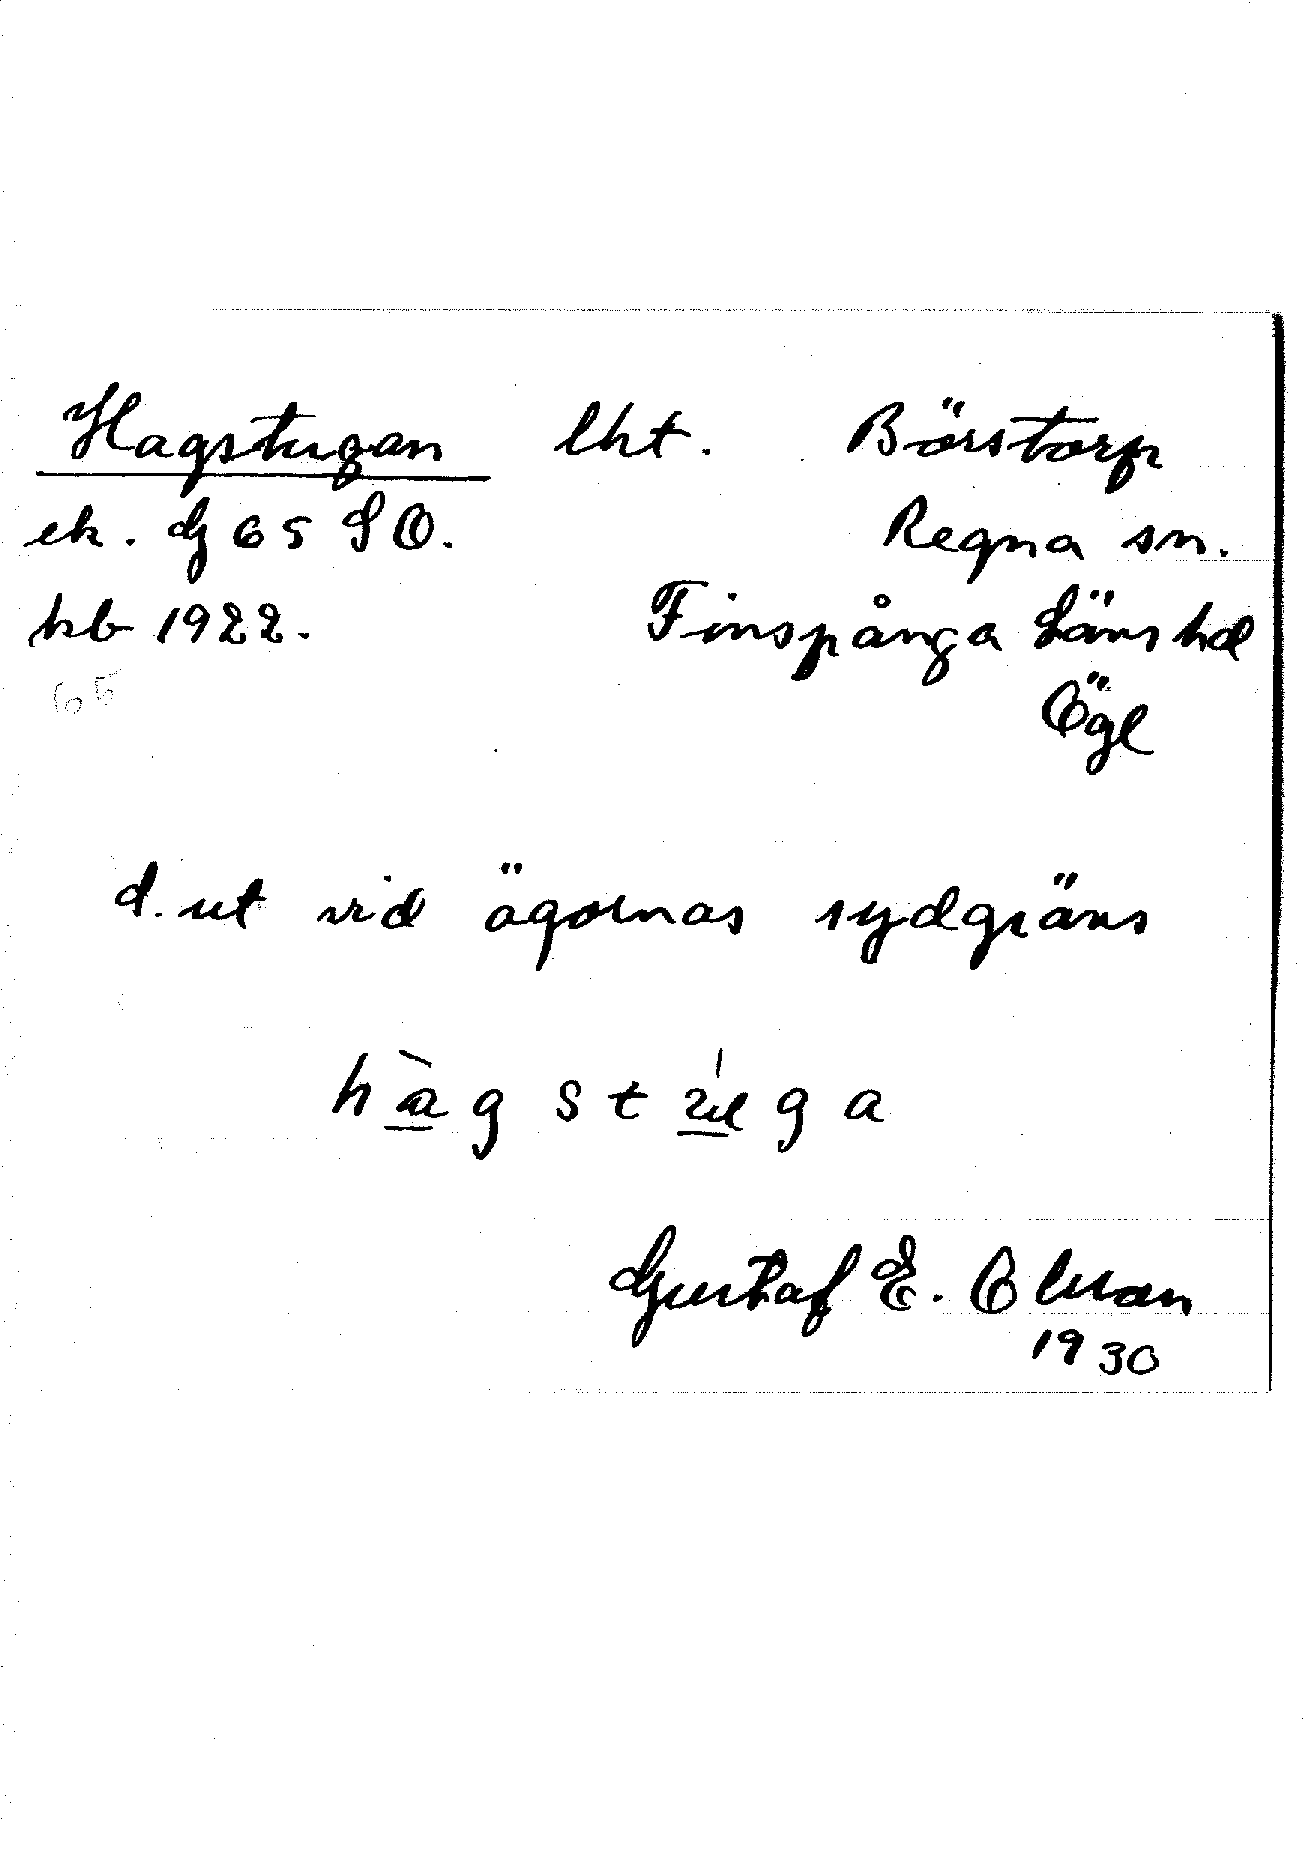 Hagstugan lht. Börstorp
ek. G 65 SO. Regna sn.
hb 1922. Finspånga Läns hd
65 Ögl
d. ut vid ägornas sydgräns
hàgstùga
Gustaf E. Olsson
1930